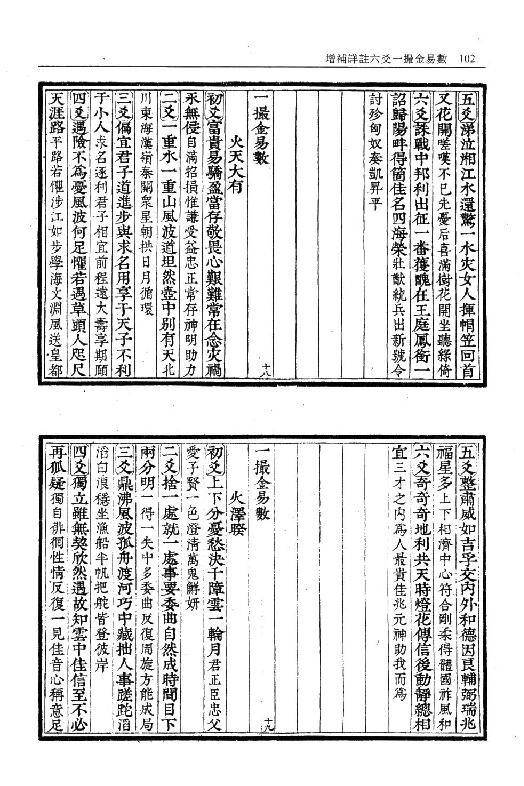 增補詳註六爻一撮金易數　102
五爻涕泣湘江水還驚一水灾女人揮㡌笠回首
又花開嗟嘆不已先憂后喜滿樹花開坐聽綠倚
六爻誅戰中邦利出征一番獲醜在王庭鳳銜一
詔歸陽畔得簡佳名四海榮壯猷統兵出新號令
討殄匈奴奏凱昇平
一撮金易數
十八
火天大有
初爻富貴易驕盈當存敬畏心艱難常在念灾禍
永無侵自滿招損惟謙受益忠正常存神明助力
二爻一重水一重山風波道坦然壺中別有天北
川東海漢嶺秦關衆星朝拱日月循環
三爻偏宜君子道進步與求名用享于天子不利
于小人求名逐利君子相宜前程遠大壽享期頤
四爻涉險不爲憂風波何足懼若遇草頭人咫尺
天涯路平路若僊涉江如步學海文淵風送皇都
五爻整肅威如吉孚交內外和德因良輔弼瑞兆
福星多上下相濟中心符合剛柔得體國祚風和
六爻奇奇奇地利共天時燈花傳信後動靜總相
宜三才之內爲人最貴佳兆元神助我而爲
一撮金易數
十九
火澤睽
初爻上下分憂愁決千障雲一輪月君正臣忠父
愛子賢一色澄清萬鬼鮮妍
二爻捨一處就一處事要委曲自然成時間目下
兩分明一得一失中多委曲反復周旋方能成局
三爻鼎沸風波孤舟渡河巧中藏拙人事蹉跎滔
滔白浪穩坐漁船半帆把舵皆登彼岸
四爻獨立雖無契欣然遇故知雲中佳信至不必
再狐疑獨自徘徊性情反復一見佳音心稱意足